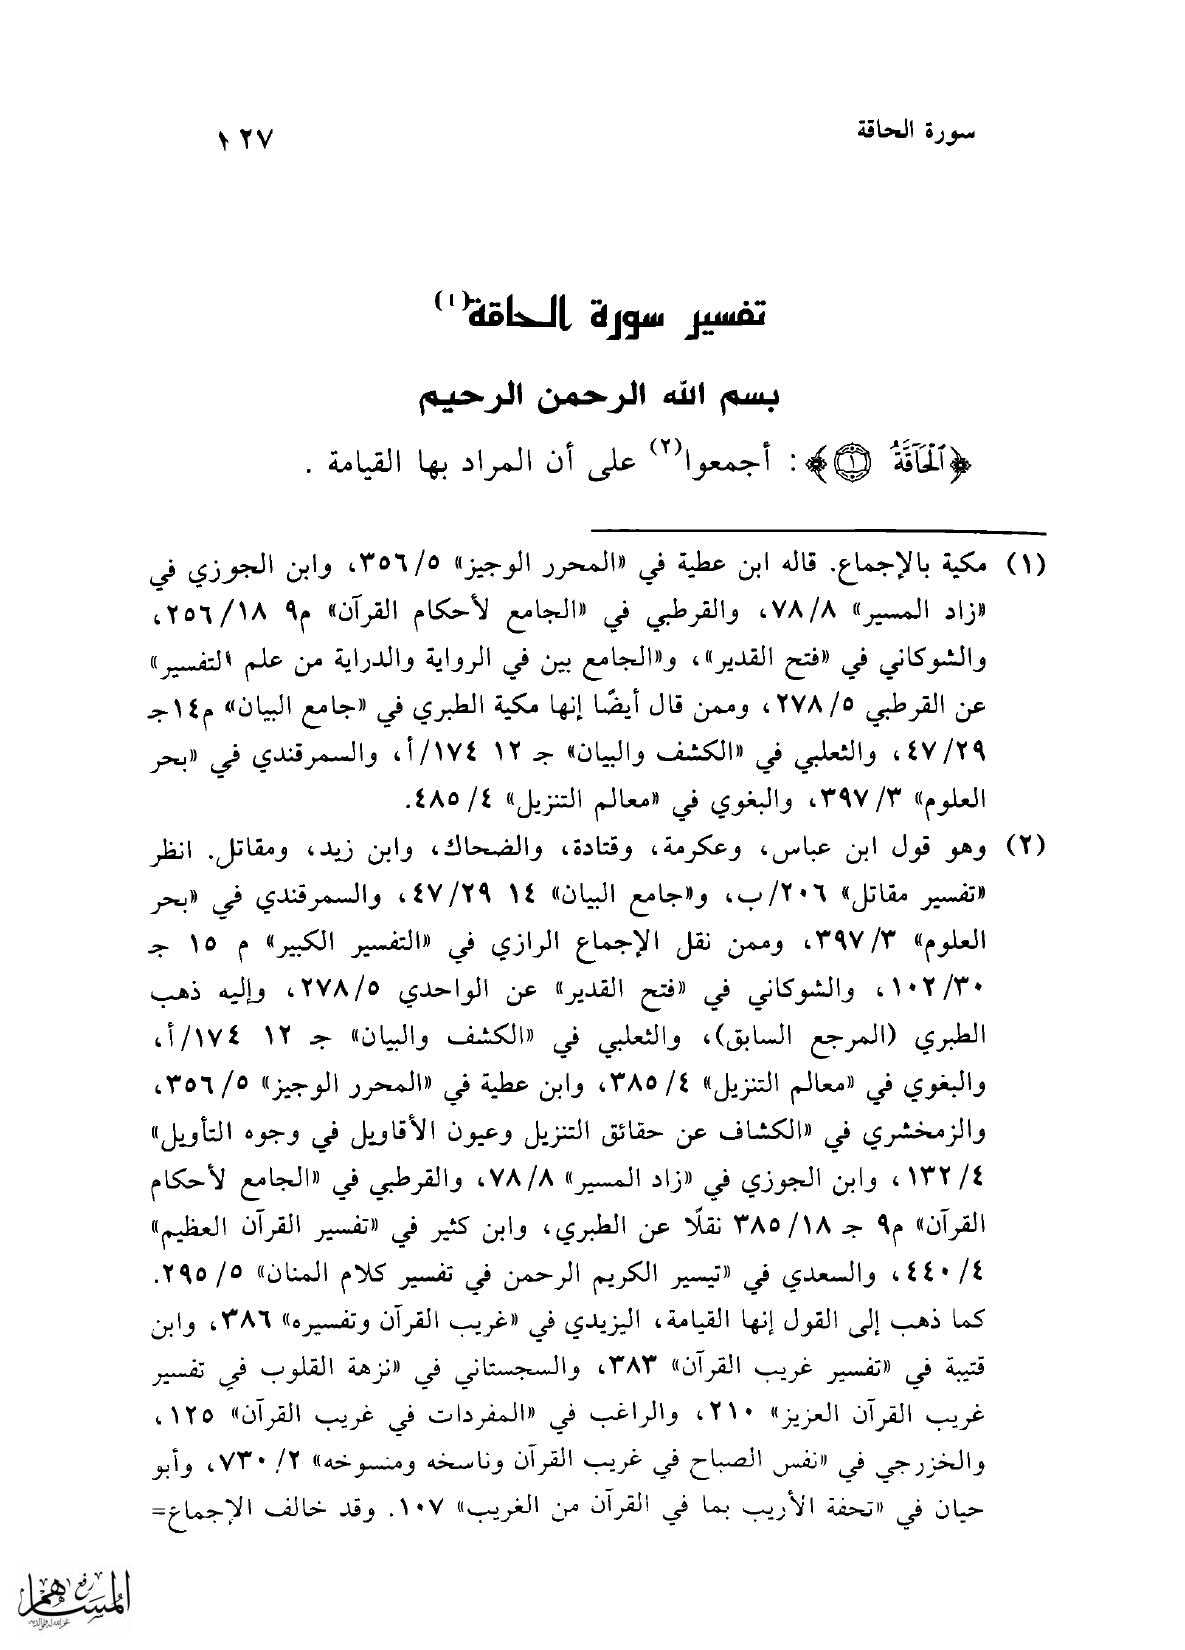 سورة الحاقة
١٢٧
تفسير سورة الحاقة(١)
بسم الله الرحمن الرحيم
﴿ٱلْحَآقَّةُ ١﴾ : أجمعوا(٢) على أن المراد بها القيامة .
(١) مكية بالإجماع. قاله ابن عطية في «المحرر الوجيز» ٣٥٦/٥، وابن الجوزي في
«زاد المسير» ٧٨/٨، والقرطبي في «الجامع لأحكام القرآن» م٩ ٢٥٦/١٨،
والشوكاني في «فتح القدير»، و«الجامع بين في الرواية والدراية من علم التفسير»
عن القرطبي ٢٧٨/٥، وممن قال أيضًا إنها مكية الطبري في «جامع البيان» م١٤جـ
٤٧/٢٩، والثعلبي في «الكشف والبيان» جـ ١٢ ١٧٤/أ، والسمرقندي في «بحر
العلوم» ٣٩٧/٣، والبغوي في «معالم التنزيل» ٤٨٥/٤.
(٢) وهو قول ابن عباس، وعكرمة، وقتادة، والضحاك، وابن زيد، ومقاتل. انظر
«تفسير مقاتل» ٢٠٦/ب، و«جامع البيان» ١٤ ٤٧/٢٩، والسمرقندي في «بحر
العلوم» ٣٩٧/٣، وممن نقل الإجماع الرازي في «التفسير الكبير» م ١٥ جـ
١٠٢/٣٠، والشوكاني في «فتح القدير» عن الواحدي ٢٧٨/٥، وإليه ذهب
الطبري (المرجع السابق)، والثعلبي في «الكشف والبيان» جـ ١٢ ١٧٤/أ،
والبغوي في «معالم التنزيل» ٣٨٥/٤، وابن عطية في «المحرر الوجيز» ٣٥٦/٥،
والزمخشري في «الكشاف عن حقائق التنزيل وعيون الأقاويل في وجوه التأويل»
١٣٢/٤، وابن الجوزي في «زاد المسير» ٧٨/٨، والقرطبي في «الجامع لأحكام
القرآن» م٩ جـ ٣٨٥/١٨ نقلًا عن الطبري، وابن كثير في «تفسير القرآن العظيم»
٤٤٠/٤، والسعدي في «تيسير الكريم الرحمن في تفسير كلام المنان» ٢٩٥/٥.
كما ذهب إلى القول إنها القيامة، اليزيدي في «غريب القرآن وتفسيره» ٣٨٦، وابن
قتيبة في «تفسير غريب القرآن» ٣٨٣، والسجستاني في «نزهة القلوب في تفسير
غريب القرآن العزيز» ٢١٠، والراغب في «المفردات في غريب القرآن» ١٢٥،
والخزرجي في «نفس الصباح في غريب القرآن وناسخه ومنسوخه» ٧٣٠/٢، وأبو
حيان في «تحفة الأريب بما في القرآن من الغريب» ١٠٧. وقد خالف الإجماع=